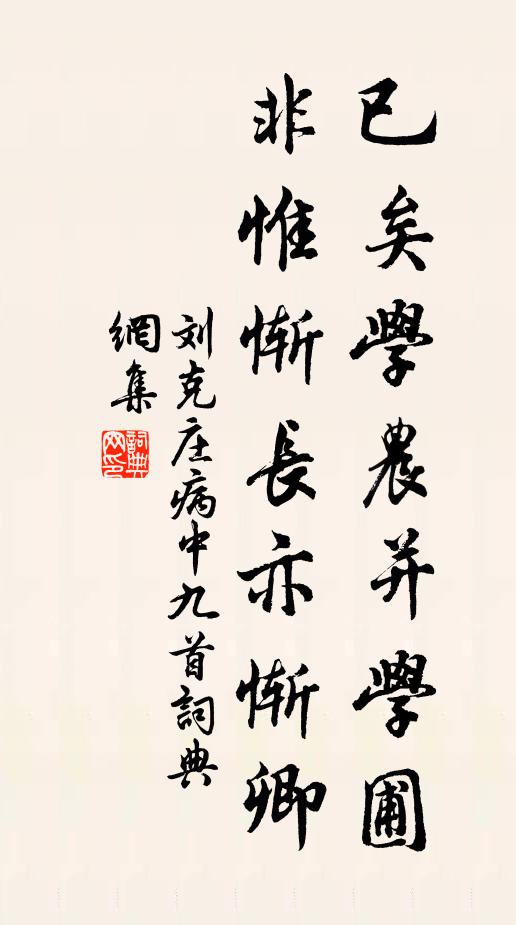 已矣學農并學圃
非惟慚長亦慚卿
刘克庄病中九首詞典
網集
詞典
网印